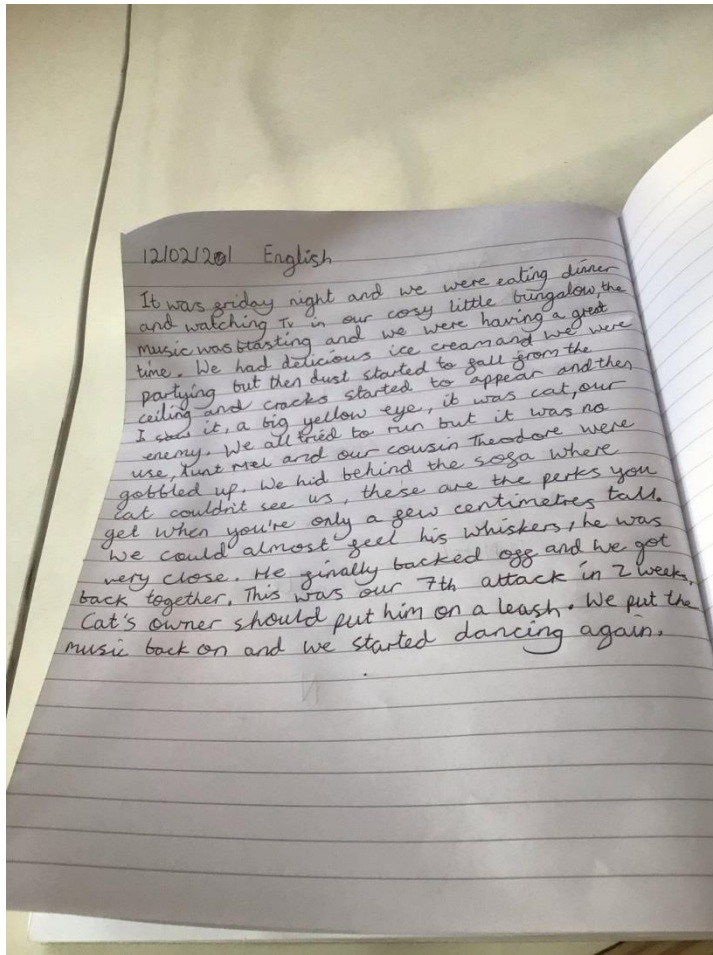 12/02/201 English
It was friday night and we were eating dinner
and watching Tv in our cosy little bungalow, the
music was blasting and we were having a great
time. We had delicious ice cream and we were
partying but then dust started to fall from the
ceiling and cracks started to appear and then
I saw it, a big yellow eye, it was cat, our
enemy. We all tried to run but it was no
use, Aunt Mel and our cousin Theodore were
gobbled up. We hid behind the sofa where
cat couldn't see us, these are the perks you
get when you're only a few centimetres tall.
We could almost feel his whiskers, he was
very close. He finally backed off and we got
back together. This was our 7th attack in 2 weeks,
Cat's owner should put him on a leash. We put the
music back on and we started dancing again.